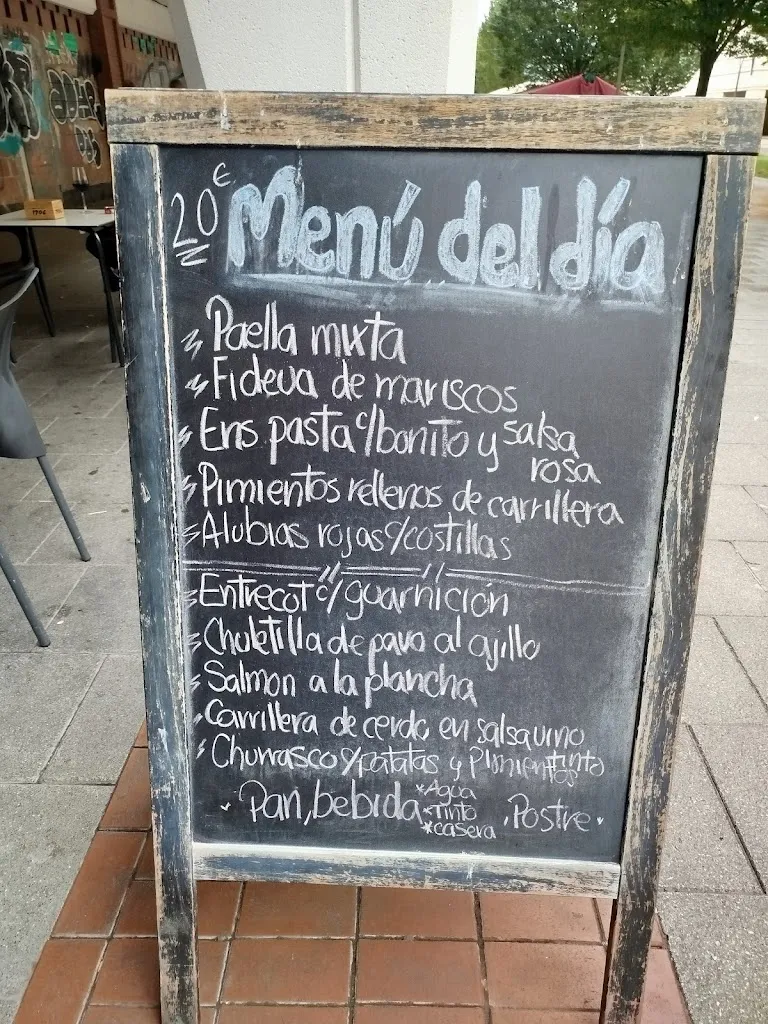 20€ Menú del día
Paella mixta
Fideua de mariscos
Ens pasta c/bonito y salsa
rosa
Pimientos rellenos de carrillera
Alubias rojas c/costillas
Entrecot c/guarnición
Chuletilla de pavo al ajillo
Salmon a la plancha
Carrillera de cerdo en salsa vino
tinto
Churrasco c/patatas y Pimientos
Pan, bebida *Agua
*Tinto
*casera
, Postre.
1906